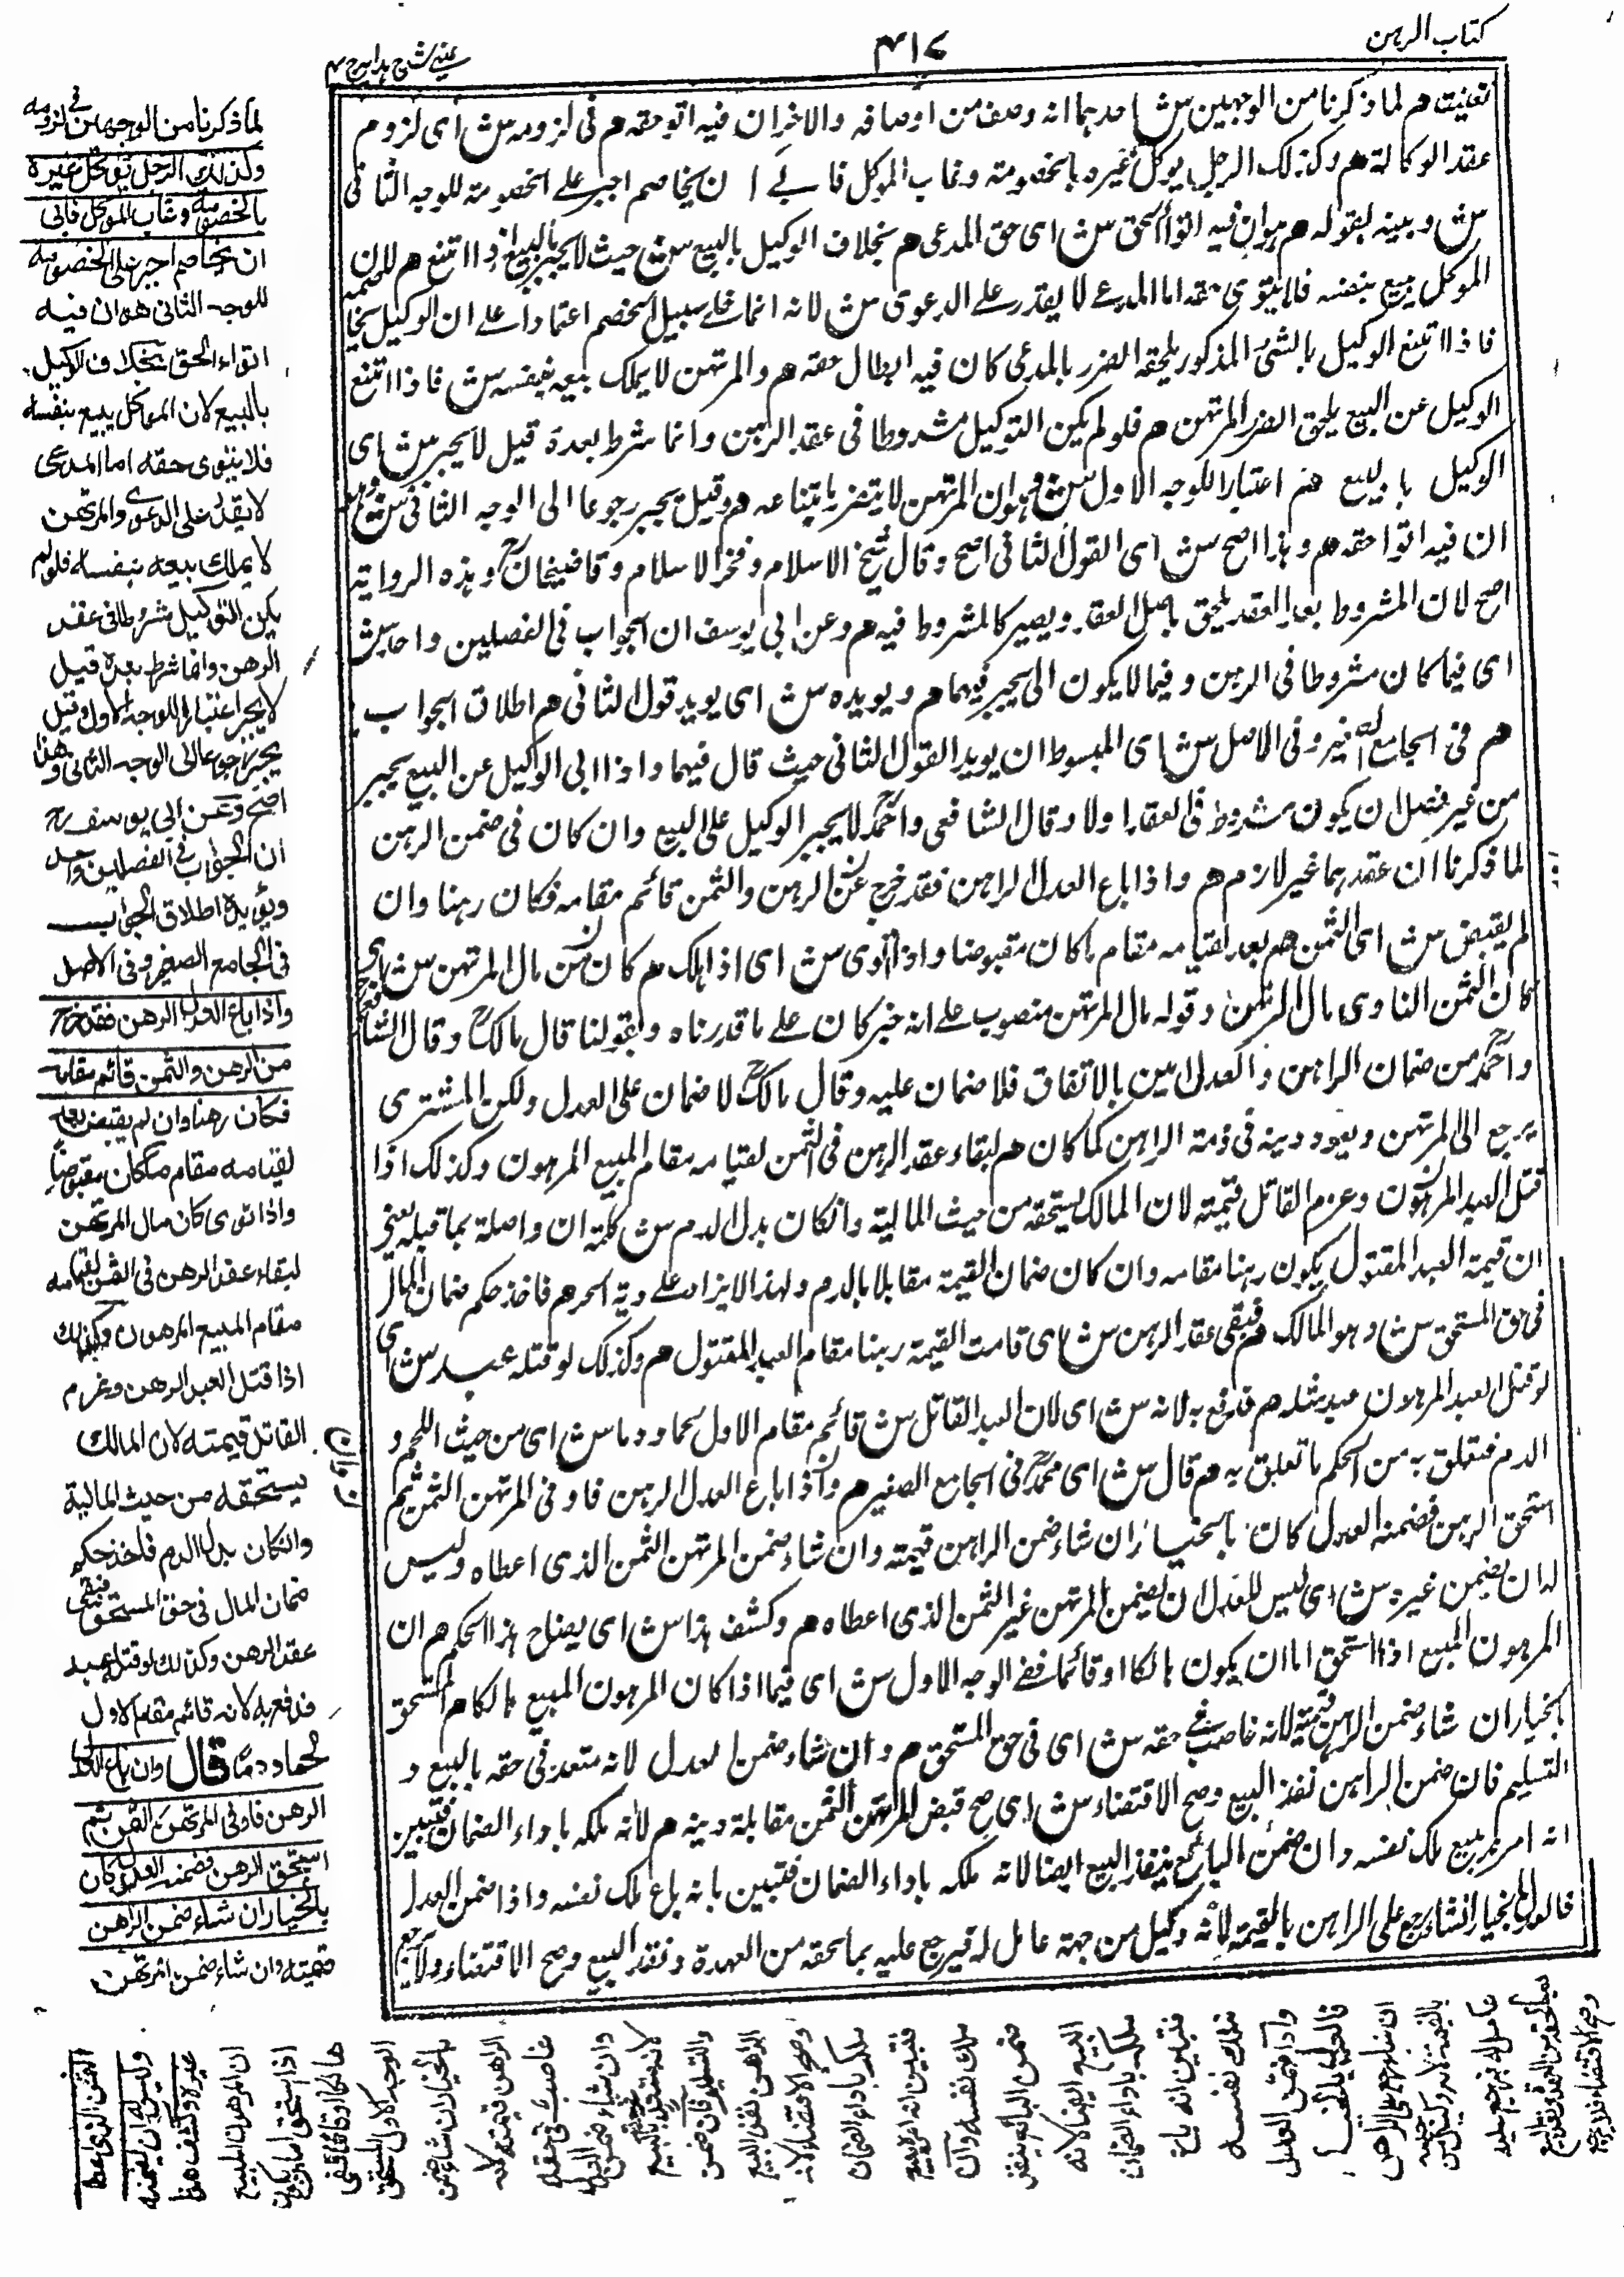 كتاب الرهن
٤١٧
عينى شرح هدايه ج ٤
تغنيت هم لما ذكرنا من الوجهين ش احدهما انه وصف من اوصافه والاخر ان فيه اتو حقه هم فى لزومه ش اى لزوم
عقد الوكالة هم وكذلك الرجل يوكل غيره بالخصومته وغاب الموكل فابى ان يخاصم اجبر على الخصومته للوجه الثانى
ش وبينه بقوله هم وهو ان فيه اتوأ الحق ش اى حق المدعى هم بخلاف الوكيل بالبيع ش حيث لا يجبر بالبيع اذا امتنع هم لان
الموكل يبيع بنفسه فلا يتوى حقه اما المدعى لا يقدر على الدعوى ش لانه انما خلى سبيل الخصم اعتمادا على ان الوكيل يخاصمه
فاذا امتنع الوكيل بالشئ المذكور يلحقه الضرر بالمدعى كان فيه ابطال حقه هم والمرتهن لا يملك بيعه بنفسه ش فاذا امتنع
الوكيل عن البيع يلحق الضرر المرتهن هم فلو لم يكن التوكيل مشروطا فى عقد الرهن وانما شرط بعده قيل لا يجبر ش اى
الوكيل بالبيع هم اعتبارا للوجه الاول ش وهو ان المرتهن لا يتضرر بامتناعه هم وقيل يجبر رجوعا الى الوجه الثانى ش وهو
ان فيه اتوا حقه هم وهذا اصح ش اى القول الثانى اصح وقال شيخ الاسلام وفخر الاسلام وقاضيخان وهذه الرواية
اصح لان المشروط بعد العقد يلحق باصل العقد ويصير كالمشروط فيه هم وعن ابى يوسف ان الجواب فى الفصلين واحد ش
اى فيما كان مشروطا فى الرهن وفيما لا يكون الى يجبر فيهما هم ويويده ش اى يويد قول الثانى هم اطلاق الجواب
هم فى الجامع الصغير وفى الاصل ش اى المبسوط ان يويد القول الثانى حيث قال فيهما واذا ابى الوكيل عن البيع يجبر
من غير فصل ان يكون مشروط فى العقد او لا وقال الشافعى واحمد لا يجبر الوكيل على البيع وان كان فى ضمن الرهن
لما ذكرنا ان عقدهما غير لازم هم واذا باع العدل الراهن فقد خرج عن الرهن والثمن قائم مقامه فكان رهنا وان
لم يقبض ش اى الثمن هم بعد لقيامه مقام ما كان مقبوضا واذا توى ش اى اذا هلك هم كان من مال المرتهن ش اى
كان الثمن التاوى مال المرتهن وقوله مال المرتهن منصوب على انه خبر كان على ما قدرناه وبقولنا قال مالك وقال الشافعى
واحمد من ضمان الراهن والعدل امين بالاتفاق فلا ضمان عليه وقال مالك لا ضمان على العدل ولكن المشترى
يرجع الى المرتهن ويعود دينه فى ذمة الراهن كما كان هم لبقاء عقد الرهن فى الثمن لقيامه مقام المبيع المرهون وكذلك اذا
قتل العبد المرهون وغرم القاتل قيمته لان المالك يستحقه من حيث المالية وانكان بدل الدم ش كلمة ان واصلة بما قبله يعنى
ان قيمة العبد المقتول يكون رهنا مقامه وان كان ضمان القيمة مقابلا بالدم ولهذا لا يزاد على دية الحر هم فاخذ حكم ضمان المال
فى حق المستحق ش وهو المالك هم فبقى عقد الرهن ش اى قامت القيمة رهنا مقام العبد المقتول هم وكذلك لو قتله عبد ش اى
لو قتل العبد المرهون عبد مثله هم فدفع به لانه ش اى لان العبد القاتل ش قائم مقام الاول لحما ودما ش اى من حيث اللحم و
الدم فتعلق به من الحكم ما تعلق به هم قال ش اى محمد فى الجامع الصغير هم واذا باع العدل الرهن فاوفى المرتهن الثمن ثم
استحق الرهن فضمنه العدل كان بالخيار ان شاء ضمن الراهن قيمته وان شاء ضمن المرتهن الثمن الذى اعطاه وليس
له ان يضمن غيره ش اى ليس للعدل ان يضمن المرتهن غير الثمن الذى اعطاه هم وكشف هذا ش اى يضاح هذا الحكم هم ان
المرهون المبيع اذا استحق اما ان يكون هالكا او قائما ففى الوجه الاول ش اى فيما اذا كان المرهون المبيع هالكا هم المستحق
بالخيار ان شاء ضمن الراهن قيمته لانه غاصب فى حقه ش اى فى حق المستحق هم وان شاء ضمن العدل لانه متعد فى حقه بالبيع و
التسليم فان ضمن الراهن نفذ البيع وصح الاقتضاء ش اى صح قبض المرتهن الثمن مقابلة دينه هم لانه ملكه باداء الضمان فتبين
انه امر ببيع ملك نفسه وان ضمن البائع ينفذ البيع ايضا لانه ملكه باداء الضمان فتبين بانه باع ملك نفسه واذا ضمن العدل
فالعدل بالخيار انشاء رجع على الراهن بالقيمته لأنه وكيل من جهته عامل له فيرجع عليه بما لحقه من العهدة ونفذ البيع وصح الاقتضاء ولا يرجع
لما ذكرنا من الوجهين فى لزومه
وكذلك الرجل يوكل غيره
بالخصومة وغاب الموكل فابى
ان يخاصم اجبر على الخصومة
للوجه الثانى هو ان فيه
اتواء الحق بخلاف الوكيل
بالبيع لان الموكل يبيع بنفسه
فلا يتوى حقه اما المدعى
لا يقدر على الدعوى والمرتهن
لا يملك بيعه بنفسه فلو لم
يكن التوكيل مشروطا فى عقد
الرهن وانما شرط بعده قيل
لا يجبر اعتبارا للوجه الاول وقيل
يجبر رجوعا الى الوجه الثانى وهذا
اصح وعن ابى يوسف رح
ان الجواب فى الفصلين واحد
ويؤيده اطلاق الجواب
فى الجامع الصغير وفى الاصل
واذا باع العدل الرهن فقد خرج
من الرهن والثمن قائم مقامه
فكان رهنا وان لم يقبض بعد
لقيامه مقام ما كان مقبوضا
واذا توى كان مال المرتهن
لبقاء عقد الرهن فى الثمن لقيامه
مقام المبيع المرهون وكذلك
اذا قتل العبد الرهن وغرم
القاتل قيمته لان المالك
يستحقه من حيث المالية
وانكان بدل الدم فاخذ حكم
ضمان المال فى حق المستحق فبقى
عقد الرهن وكذلك لو قتله عبد
فدفع به لانه قائم مقام الاول
لحما ودما قال وان باع العدل
الرهن فاوفى المرتهن الثمن ثم
استحق الرهن فضمنه العدل كان
بالخيار ان شاء ضمن الراهن
قيمته وان شاء ضمن المرتهن
الثمن الذى اعطاه
وليس له ان يضمنه
غيره وكشف هذا
ان المرهون المبيع
اذا استحق اما ان يكون
هالكا او قائما ففى
الوجه الاول المستحق
بالخيار ان شاء ضمن
الراهن قيمته لانه
غاصب فى حقه
وان شاء ضمن العدل
لانه متعد بالبيع
والتسليم فان ضمن
الراهن نفذ البيع
وصح الاقتضاء لانه
ملكه باداء الضمان
فتبين انه امر ببيع
ملك نفسه وان
ضمن البائع ينفذ
البيع ايضا لانه
ملكه باداء الضمان
فتبين انه باع
ملك نفسه
واذا ضمن العدل
فالعدل بالخيار
ان شاء رجع على الراهن
بالقيمة لانه وكيل من جهته
عامل له فيرجع عليه
بما لحقه من العهدة ونفذ البيع
وصح الاقتضاء فلا يرجع